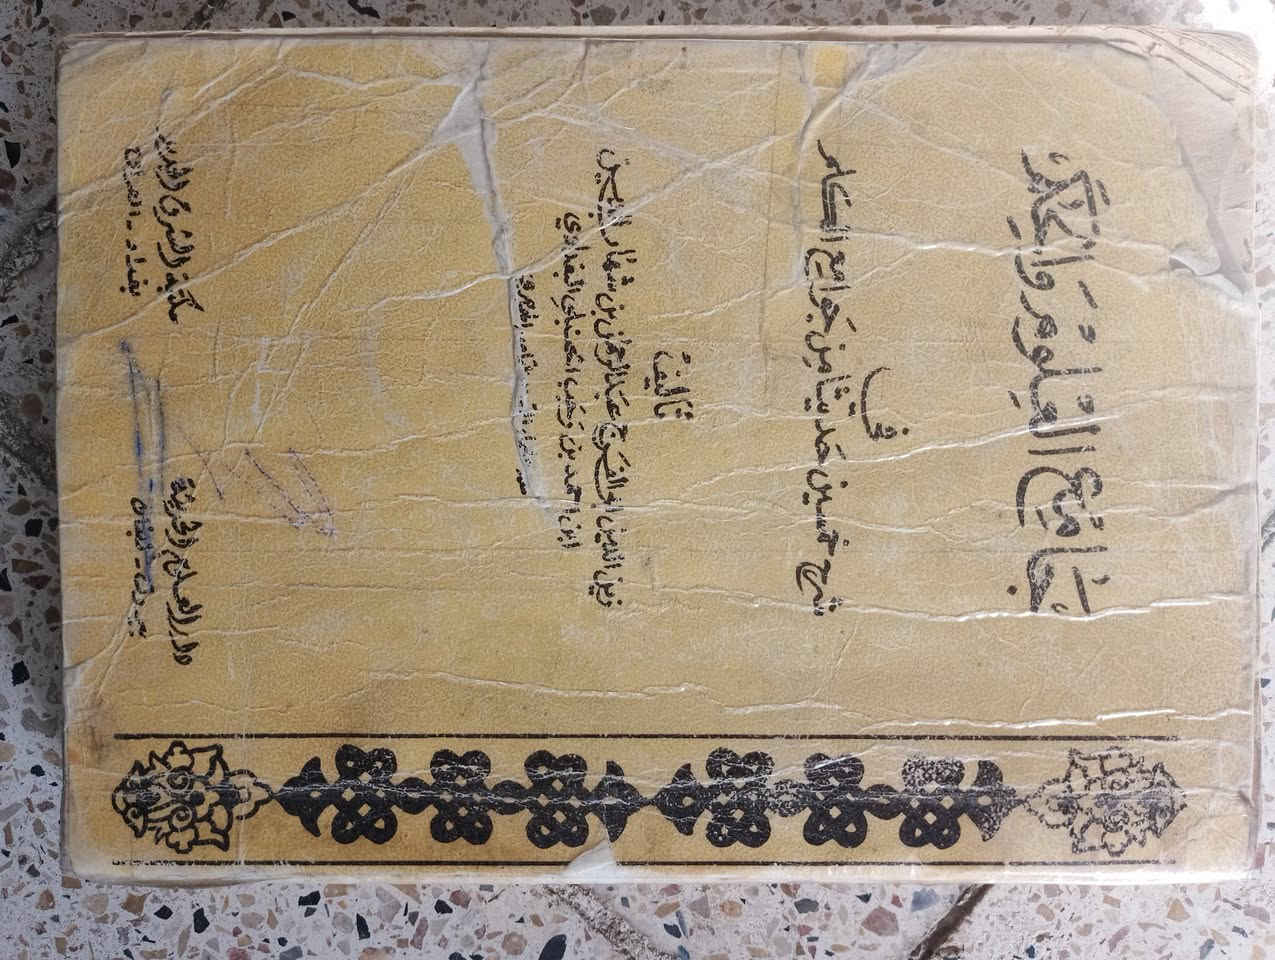 جَامِعُ العُلُومِ وَالحِكَمِ
فِي
شرح خمسين حديثا من جَوامِع الكلم
تأليف
زين الدين ابي الفرج عبد الرحمٰن بن شهاب الدين
ابن احمد بن رجب الحنبلي البغدادي
من علماء القرن الثامن الهجري
دار العلوم الحديثة
بيروت - لبنان
مكتبة الشرق الجديد
بغداد - العراق